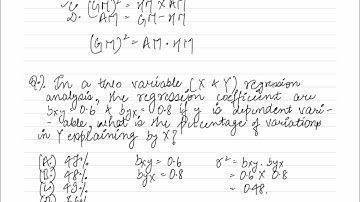 C. (GM)² = HM X AM
D. AM = GM - HM
(GM)² = AM · HM
Q.) In a two variable (X & Y) regression
analysis, the regression coefficient are
bxy = 0.6 & byx = 0.8 if y is dependent vari-
-able, what is the percentage of variations
in Y explaining by X?
(A) 48%
(B)
(C) 49%
(D)
bxy = 0.6
byx = 0.8
r² = bxy . byx
= 0.6 X 0.8
= 0.48.